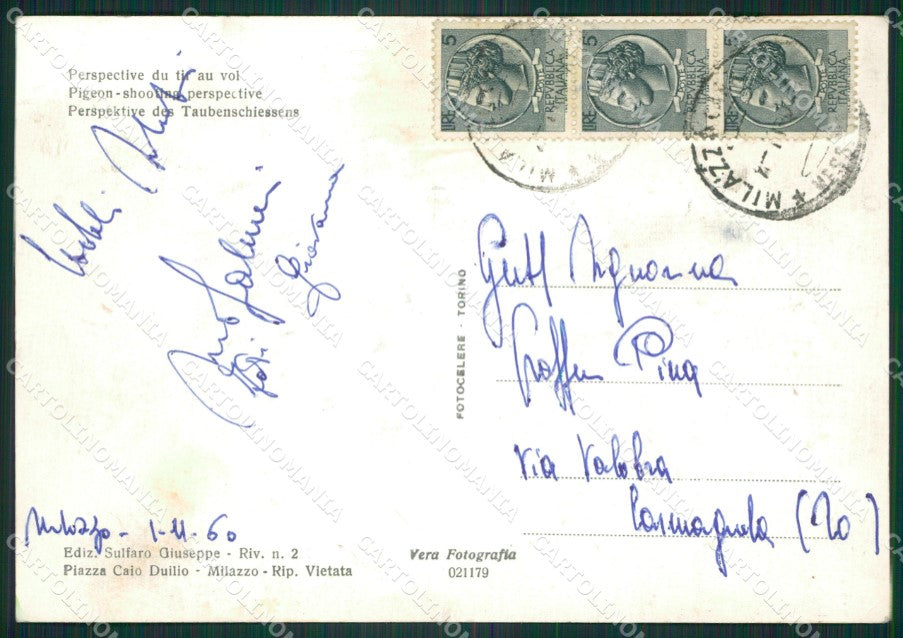 Perspective du tir au vol
Pigeon-shooting perspective
Perspektive des Taubenschiessens
LIRE 5 POSTE REPVBBLICA ITALIANA
LIRE 5 POSTE REPVBBLICA ITALIANA
LIRE 5 POSTE REPVBBLICA ITALIANA
MILAZZO
Giovanna
FOTOCELERE · TORINO
Gent. Signorina
Pina
Via Valobra
Carmagnola (To)
Milazzo - 1-11-60
Ediz. Sulfaro Giuseppe - Riv. n. 2
Piazza Caio Duilio - Milazzo - Rip. Vietata
Vera Fotografia
021179
CARTOLINOMANIA